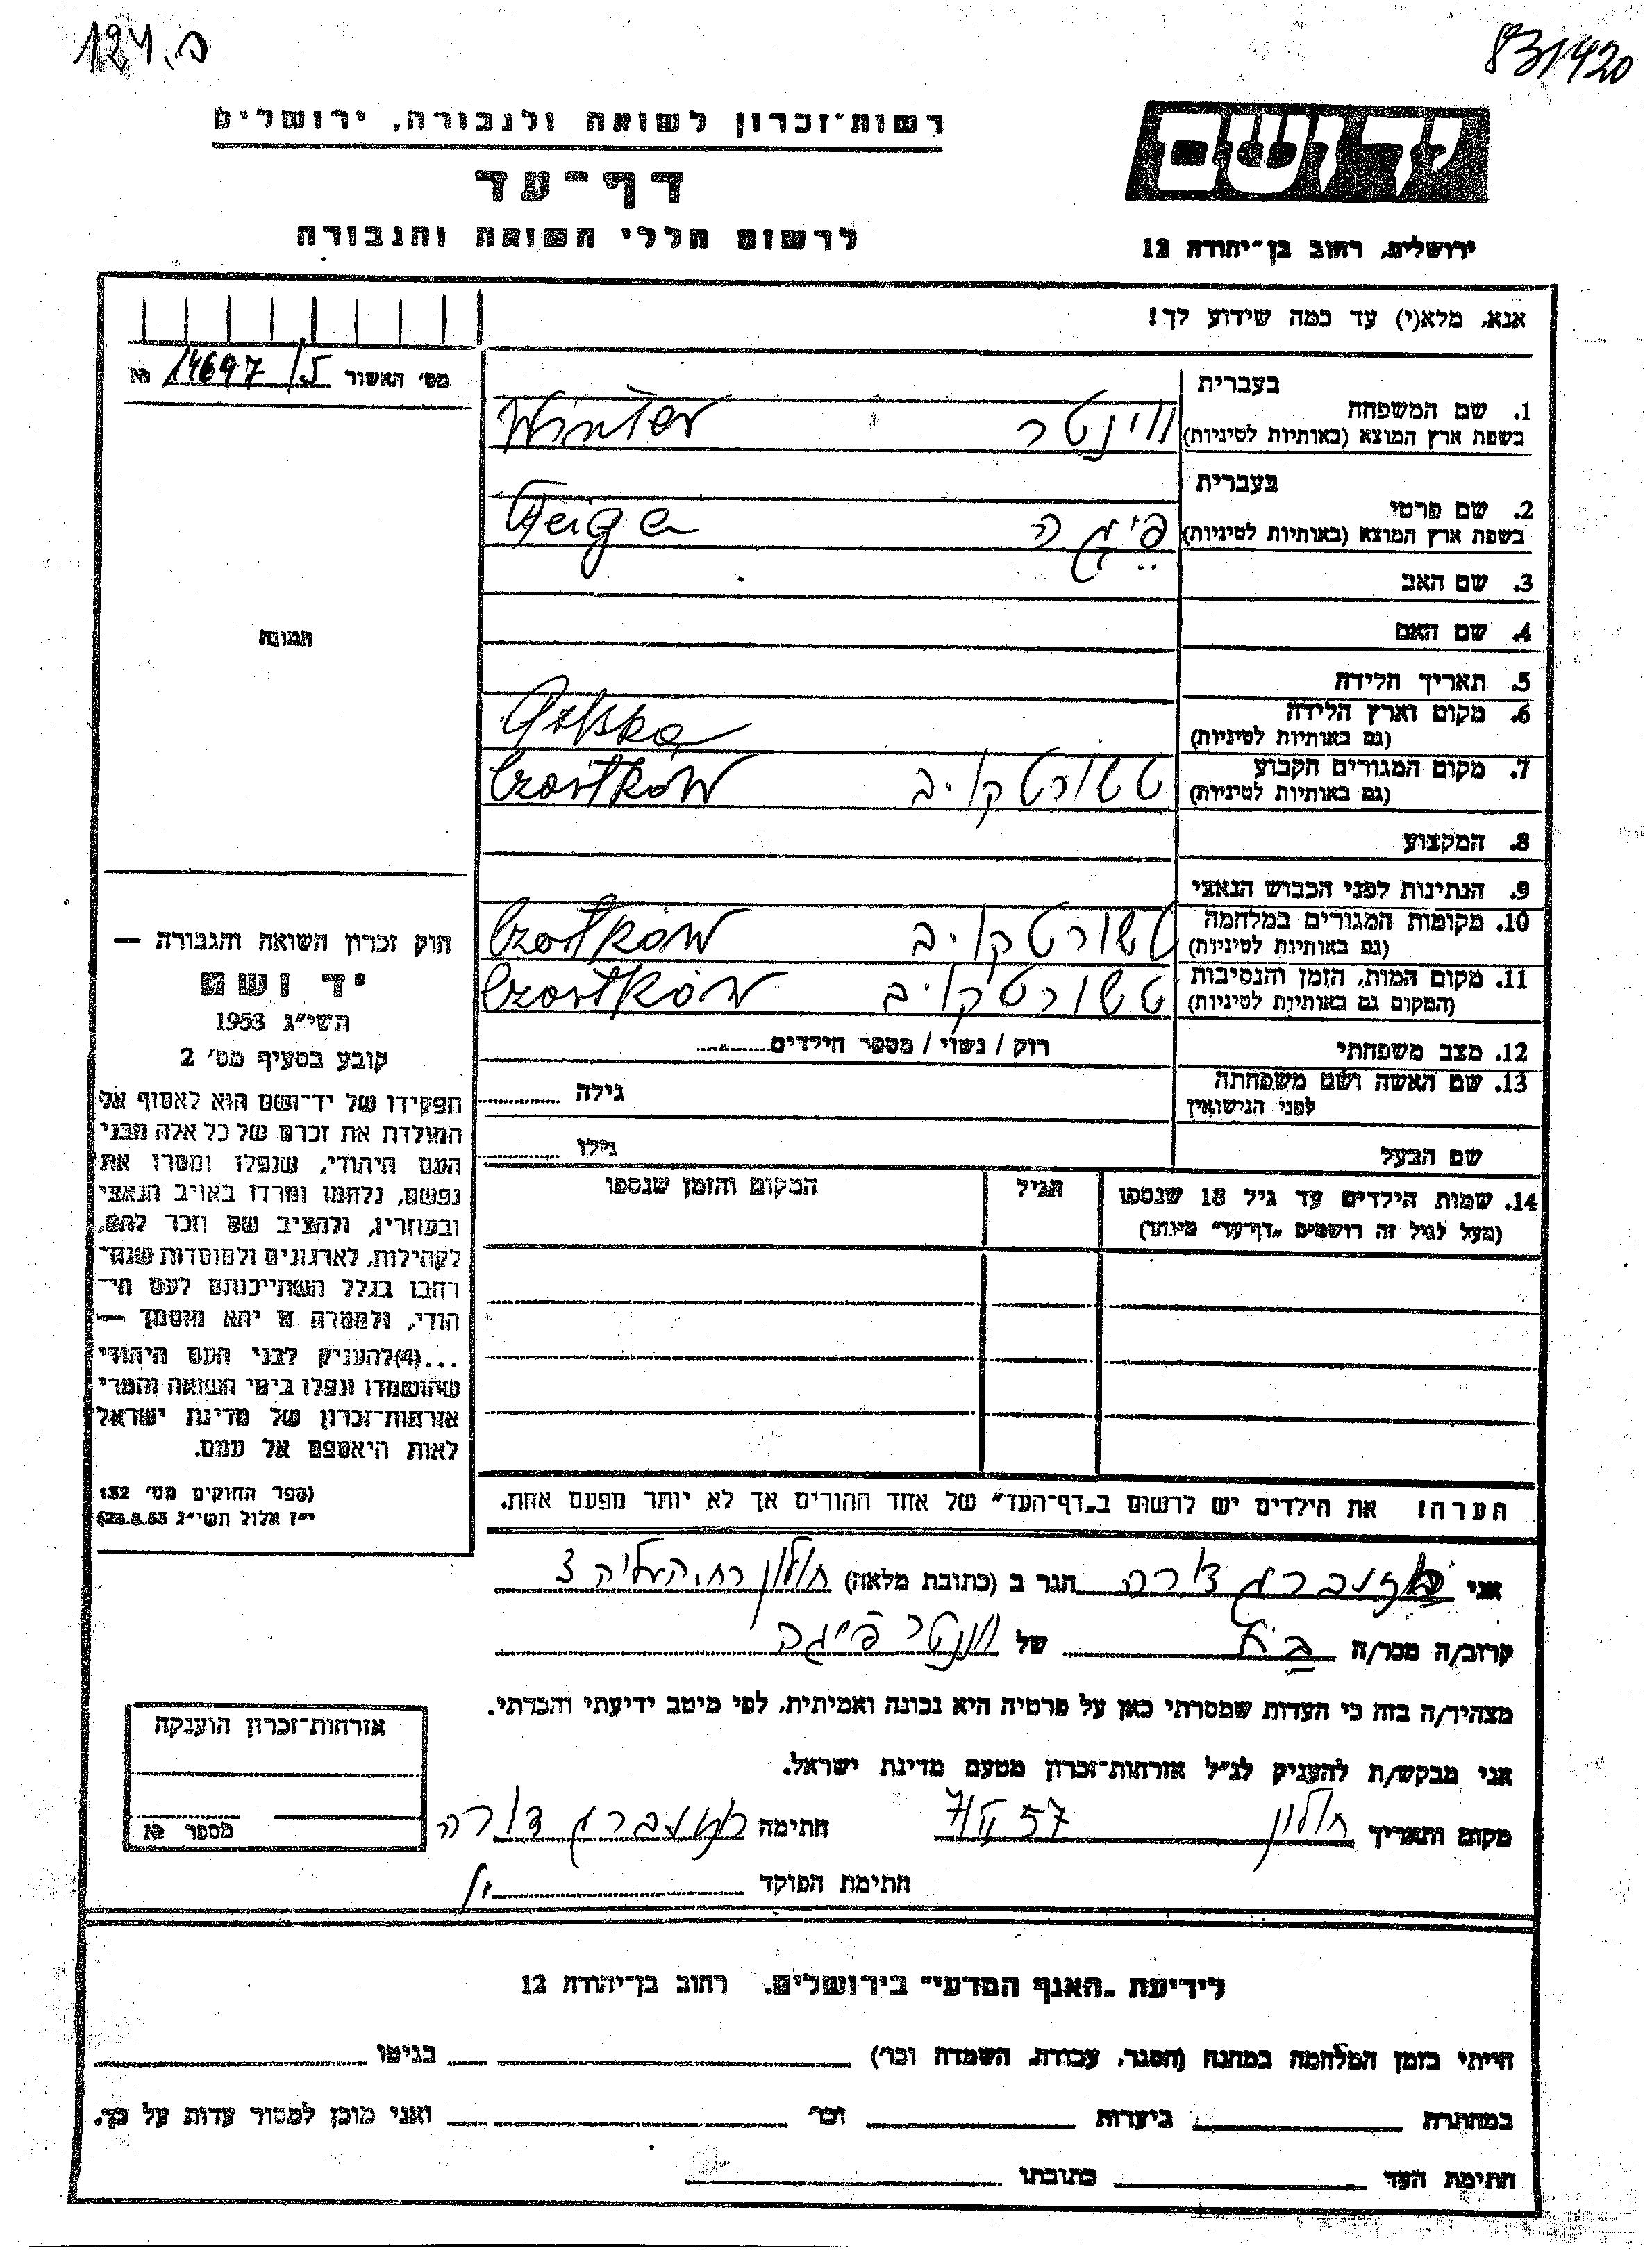 ב. 124
831420
רשות־זכרון לשואה ולגבורה, ירושלים
דף־עד
לרשום חללי השואה והגבורה
יד ושם
ירושלים, רחוב בן־יהודה 12
אנא, מלא(י) עד כמה שידוע לך!
מס' האשור 14697 / № 5
1. שם המשפחה בעברית ווינטר
בשפת ארץ המוצא (באותיות לטיניות) Winter
2. שם פרטי בעברית פייגה
בשפת ארץ המוצא (באותיות לטיניות) Feiga
3. שם האב
4. שם האם
תמונה
5. תאריך הלידה
6. מקום וארץ הלידה
(גם באותיות לטיניות) Polska
7. מקום המגורים הקבוע טשורטקויב Czortków
(גם באותיות לטיניות)
8. המקצוע
9. הנתינות לפני הכבוש הנאצי
10. מקומות המגורים במלחמה טשורטקויב Czortków
(גם באותיות לטיניות)
11. מקום המות, הזמן והנסיבות טשורטקויב Czortków
(המקום גם באותיות לטיניות)
12. מצב משפחתי רווק / נשוי / מספר הילדים
13. שם האשה ושם משפחתה גילה
לפני הנישואין
שם הבעל גילו
14. שמות הילדים עד גיל 18 שנספו הגיל המקום והזמן שנספו
(מעל לגיל זה רושמים „דף־עד" מיוחד)
הערה! את הילדים יש לרשום ב„דף־העד" של אחד ההורים אך לא יותר מפעם אחת.
חוק זכרון השואה והגבורה —
יד ושם
תשי״ג 1953
קובע בסעיף מס' 2
תפקידו של יד־ושם הוא לאסוף אל
המולדת את זכרם של כל אלה מבני
העם היהודי, שנפלו ומסרו את
נפשם, נלחמו ומרדו באויב הנאצי
ובעוזריו, ולהציב שם וזכר להם,
לקהילות, לארגונים ולמוסדות שנח־
רבו בגלל השתייכותם לעם הי־
הודי, ולמטרה זו יהא מוסמך —
...(4)להעניק לבני העם היהודי
שהושמדו ונפלו בימי השואה והמרי
אזרחות־זכרון של מדינת ישראל
לאות היאספם אל עמם.
(ספר החוקים מס' 132
י״ז אלול תשי״ג 28.8.53)
אני דורה הגר ב (כתובת מלאה) חולון רח. העליה 3
קרוב/ה מכר/ה של ווינטר פייגה
מצהיר/ה בזה כי העדות שמסרתי כאן על פרטיה היא נכונה ואמיתית, לפי מיטב ידיעתי והכרתי.
אני מבקש/ת להעניק לנ״ל אזרחות־זכרון מטעם מדינת ישראל.
מקום ותאריך חולון 57 חתימה דורה
חתימת הפוקד
אזרחות־זכרון הוענקה
מספר №
לידיעת „האגף המדעי" בירושלים. רחוב בן־יהודה 12
הייתי בזמן המלחמה במחנה (הסגר, עבודה, השמדה וכו') בגיטו
במחתרת ביערות וכו' ואני מוכן למסור עדות על כך.
חתימת העד כתובתו